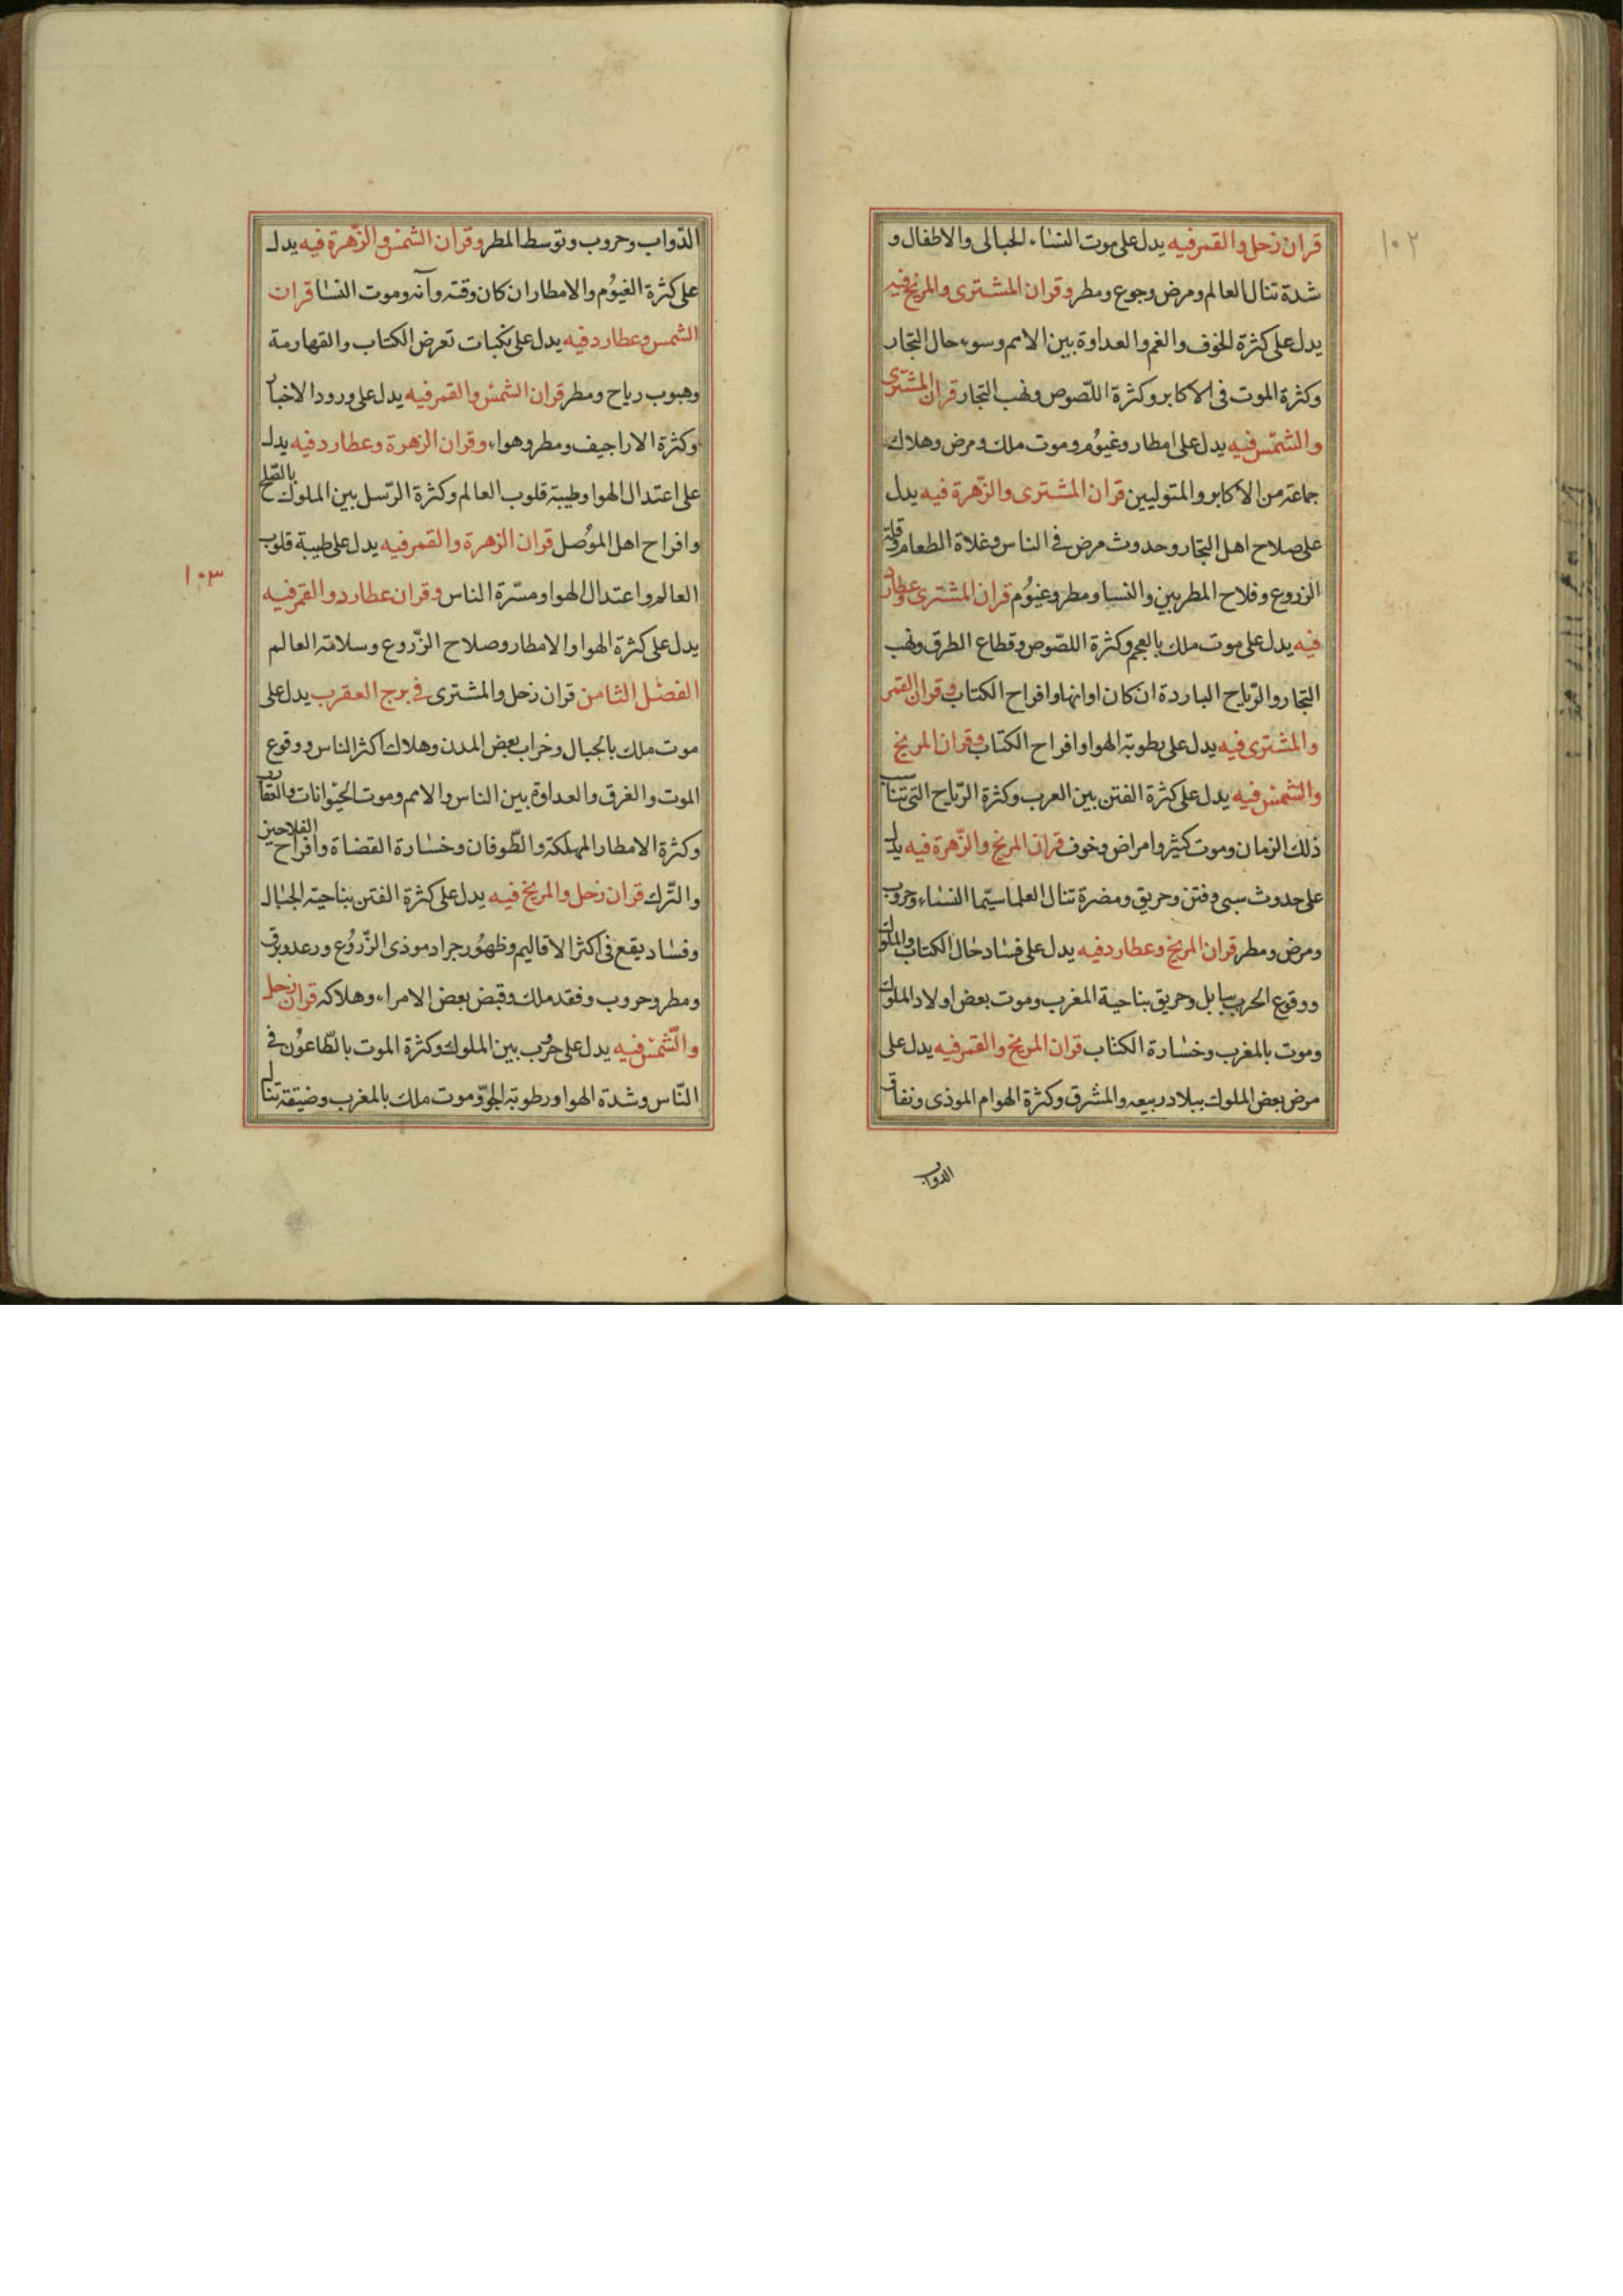 ١٠٢
قران زحل والقمر فيه يدل على موت النساء الحبالى والاطفال و
شدة تنال العالم ومرض وجوع ومطر وقران المشترى والمريخ فيه
يدل على كثرة الخوف والغم والعداوة بين الامم وسوء حال التجار
وكثرة الموت فى الاكابر وكثرة اللصوص ونهب التجار قران المشترى
والشمس فيه يدل على امطار وغيوم وموت ملك ومرض وهلاك
جماعة من الاكابر والمتوليين قران المشترى والزهرة فيه يدل
على صلاح اهل التجار وحدوث مرض فى الناس وغلاة الطعام وقلة
الزروع وفلاح المطربين والنسا ومطر وغيوم قران المشترى وعطارد
فيه يدل على موت ملك بالعجم وكثرة اللصوص وقطاع الطرق ونهب
التجار والرياح الباردة ان كان اوانها وافراح الكتاب وقران القمر
والمشترى فيه يدل على رطوبة الهوا وافراح الكتاب وقران المريخ
والشمس فيه يدل على كثرة الفتن بين العرب وكثرة الرياح التى تناسب
ذلك الزمان وموت كثير وامراض وخوف قران المريخ والزهرة فيه يدل
على حدوث سبى وفتن وحريق ومضرة تنال العلما سيما النساء وحروب
ومرض ومطر قران المريخ وعطارد فيه يدل على فساد حال الكتاب والملوك
ووقوع الحرب ببابل وحريق بناحية المغرب وموت بعض اولاد الملوك
وموت بالمغرب وخسارة الكتاب قران المريخ والقمر فيه يدل على
مرض بعض الملوك ببلاد ربيعه والمشرق وكثرة الهوام الموذى ونفاق
الدواب
الدواب وحروب وتوسط المطر وقران الشمس والزهرة فيه يدل
على كثرة الغيوم والامطار ان كان وقته وآنه وموت النسا قران
الشمس وعطارد فيه يدل على نكبات تعرض الكتاب والقهارمة
وهبوب رياح ومطر قران الشمس والقمر فيه يدل على ورود الاخبار
وكثرة الاراجيف ومطر وهواء وقران الزهرة وعطارد فيه يدل
على اعتدال الهوا وطيبة قلوب العالم وكثرة الرسل بين الملوك بالصلح
وافراح اهل الموصل قران الزهرة والقمر فيه يدل على طيبة قلوب
العالم واعتدال الهوا ومسرة الناس وقران عطارد والقمر فيه
١٠٣
يدل على كثرة الهوا والامطار وصلاح الزروع وسلامة العالم
الفصل الثامن قران زحل والمشترى فى برج العقرب يدل على
موت ملك بالجبال وخراب بعض المدن وهلاك اكثر الناس ووقوع
الموت والغرق والعداوة بين الناس والامم وموت الحيوانات والعقارب
وكثرة الامطار المهلكة والطوفان وخسارة القضاة وافراح الفلاحين
والترك قران زحل والمريخ فيه يدل على كثرة الفتن بناحية الجبال
وفساد يقع فى اكثر الاقاليم وظهور جراد موذى الزروع ورعد وبرق
ومطر وحروب وفقد ملك وقبض بعض الامراء وهلاكه قران زحل
والشمس فيه يدل على حرب بين الملوك وكثرة الموت بالطاعون فى
الناس وشدة الهوا ورطوبة الجو وموت ملك بالمغرب وضيقة تنال